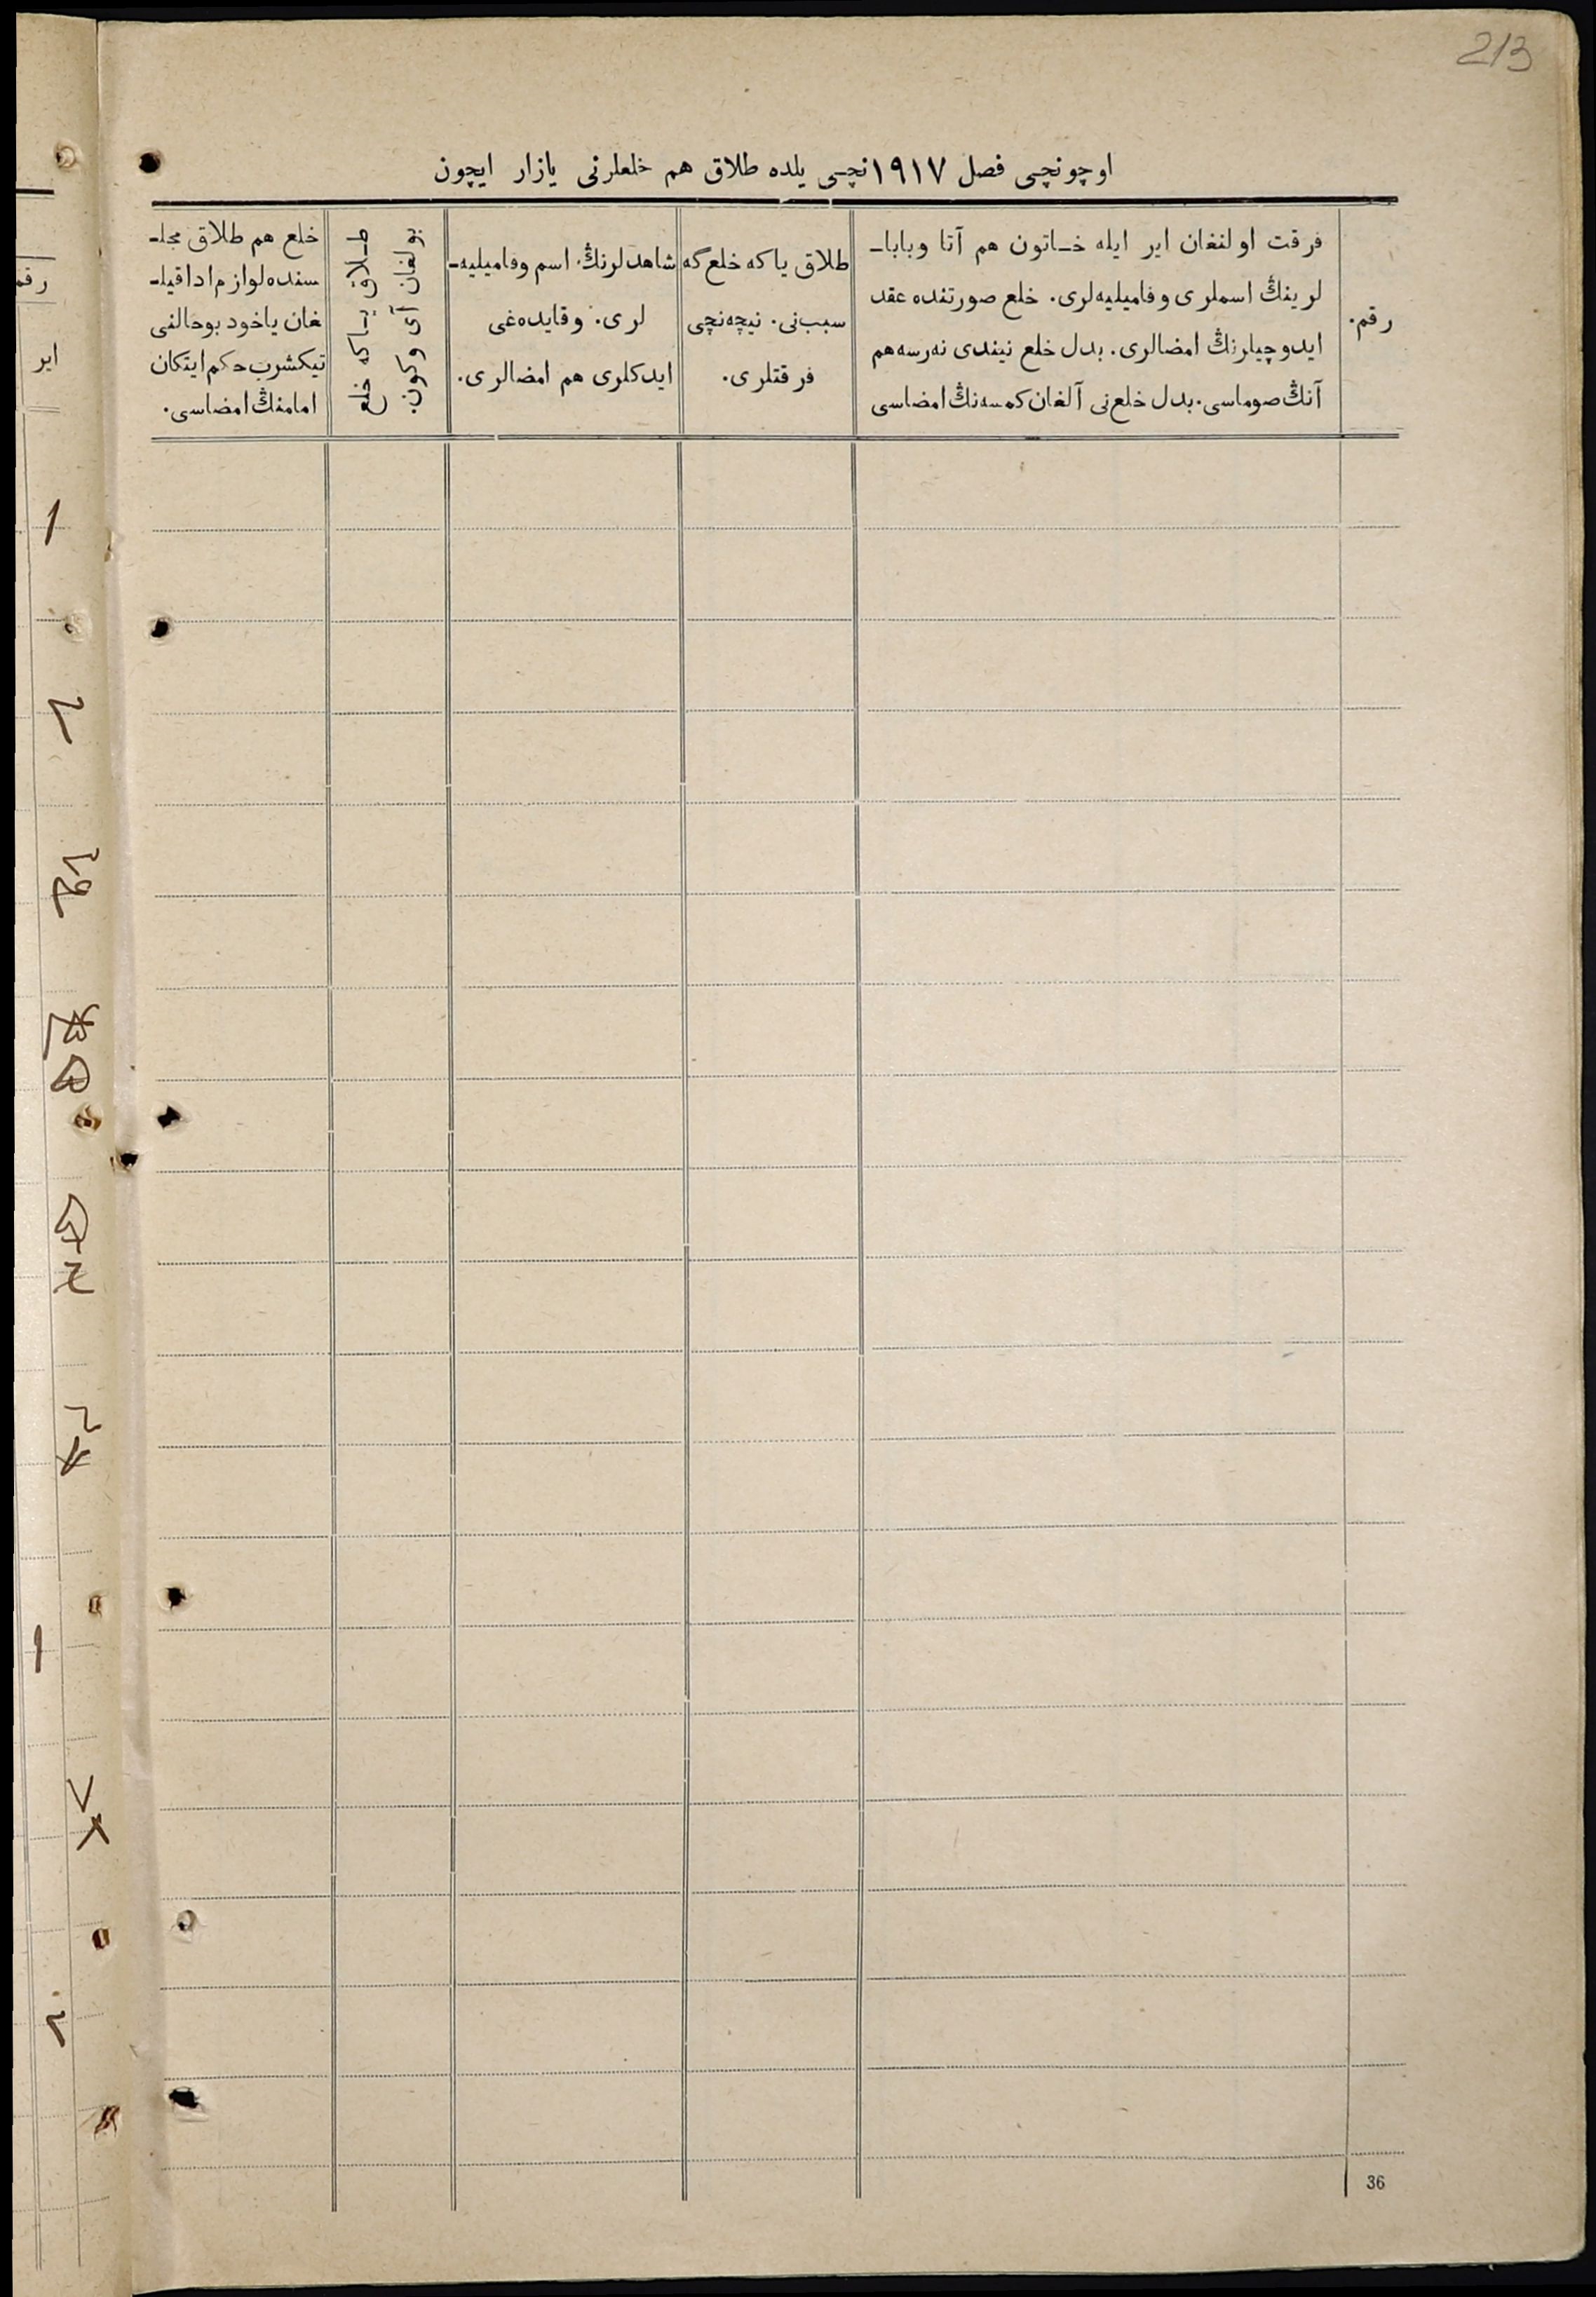 213
اوچونچی فصل ١٩١٧نچی یلده طلاق هم خلعلرنی یازار ایچون
رقم.
فرقت اولنغان ایر ایله خـاتون هم آتا وبابا-
لرینڭ اسملری وفامیلیه‌لری. خلع صورتنده عقد
ایدوچیلرنڭ امضالری. بدل خلع نیندی نه‌رسه هم
آنڭ صوماسی. بدل خلع‌نی آلغان کمسه‌نڭ امضاسی
طلاق یا که خلع گه
سبب‌نی. نیچه‌نچی
فرقتلری.
شاهدلرنڭ اسم وفامیلیه-
لری. وقایده‌غی
ایدکلری هم امضالری.
طـلاق یـاکه خلع
بولغان آی وکون.
خلع هم طلاق مجلـ
سنده لوازم ادا قیلـ
غان یاخود بوحالنی
تیکشرب حکم ایتکان
امامنڭ امضاسی.
36
رقم
ایر
١
٢
١
٢